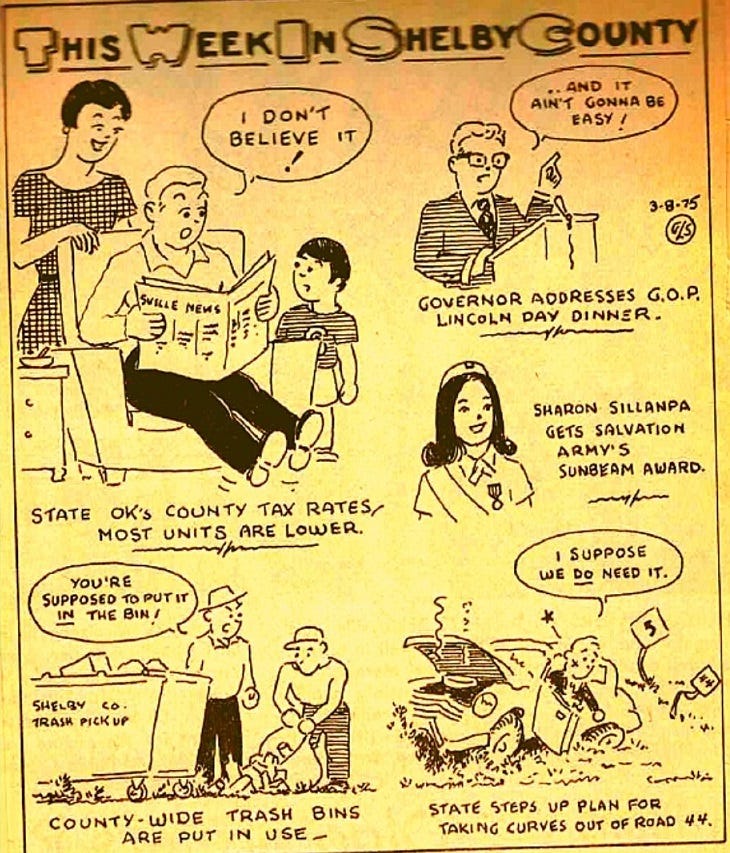 THIS WEEK IN SHELBY COUNTY
I DON'T
BELIEVE IT
!
SVILLE NEWS
STATE OK's COUNTY TAX RATES,
MOST UNITS ARE LOWER.
..AND IT
AIN'T GONNA BE
EASY!
3-8-75
GLS
GOVERNOR ADDRESSES G.O.P.
LINCOLN DAY DINNER.
SHARON SILLANPA
GETS SALVATION
ARMY'S
SUNBEAM AWARD.
YOU'RE
SUPPOSED TO PUT IT
IN THE BIN!
SHELBY CO.
TRASH PICK UP
COUNTY-WIDE TRASH BINS
ARE PUT IN USE_
I SUPPOSE
WE DO NEED IT.
5
44
STATE STEPS UP PLAN FOR
TAKING CURVES OUT OF ROAD 44.